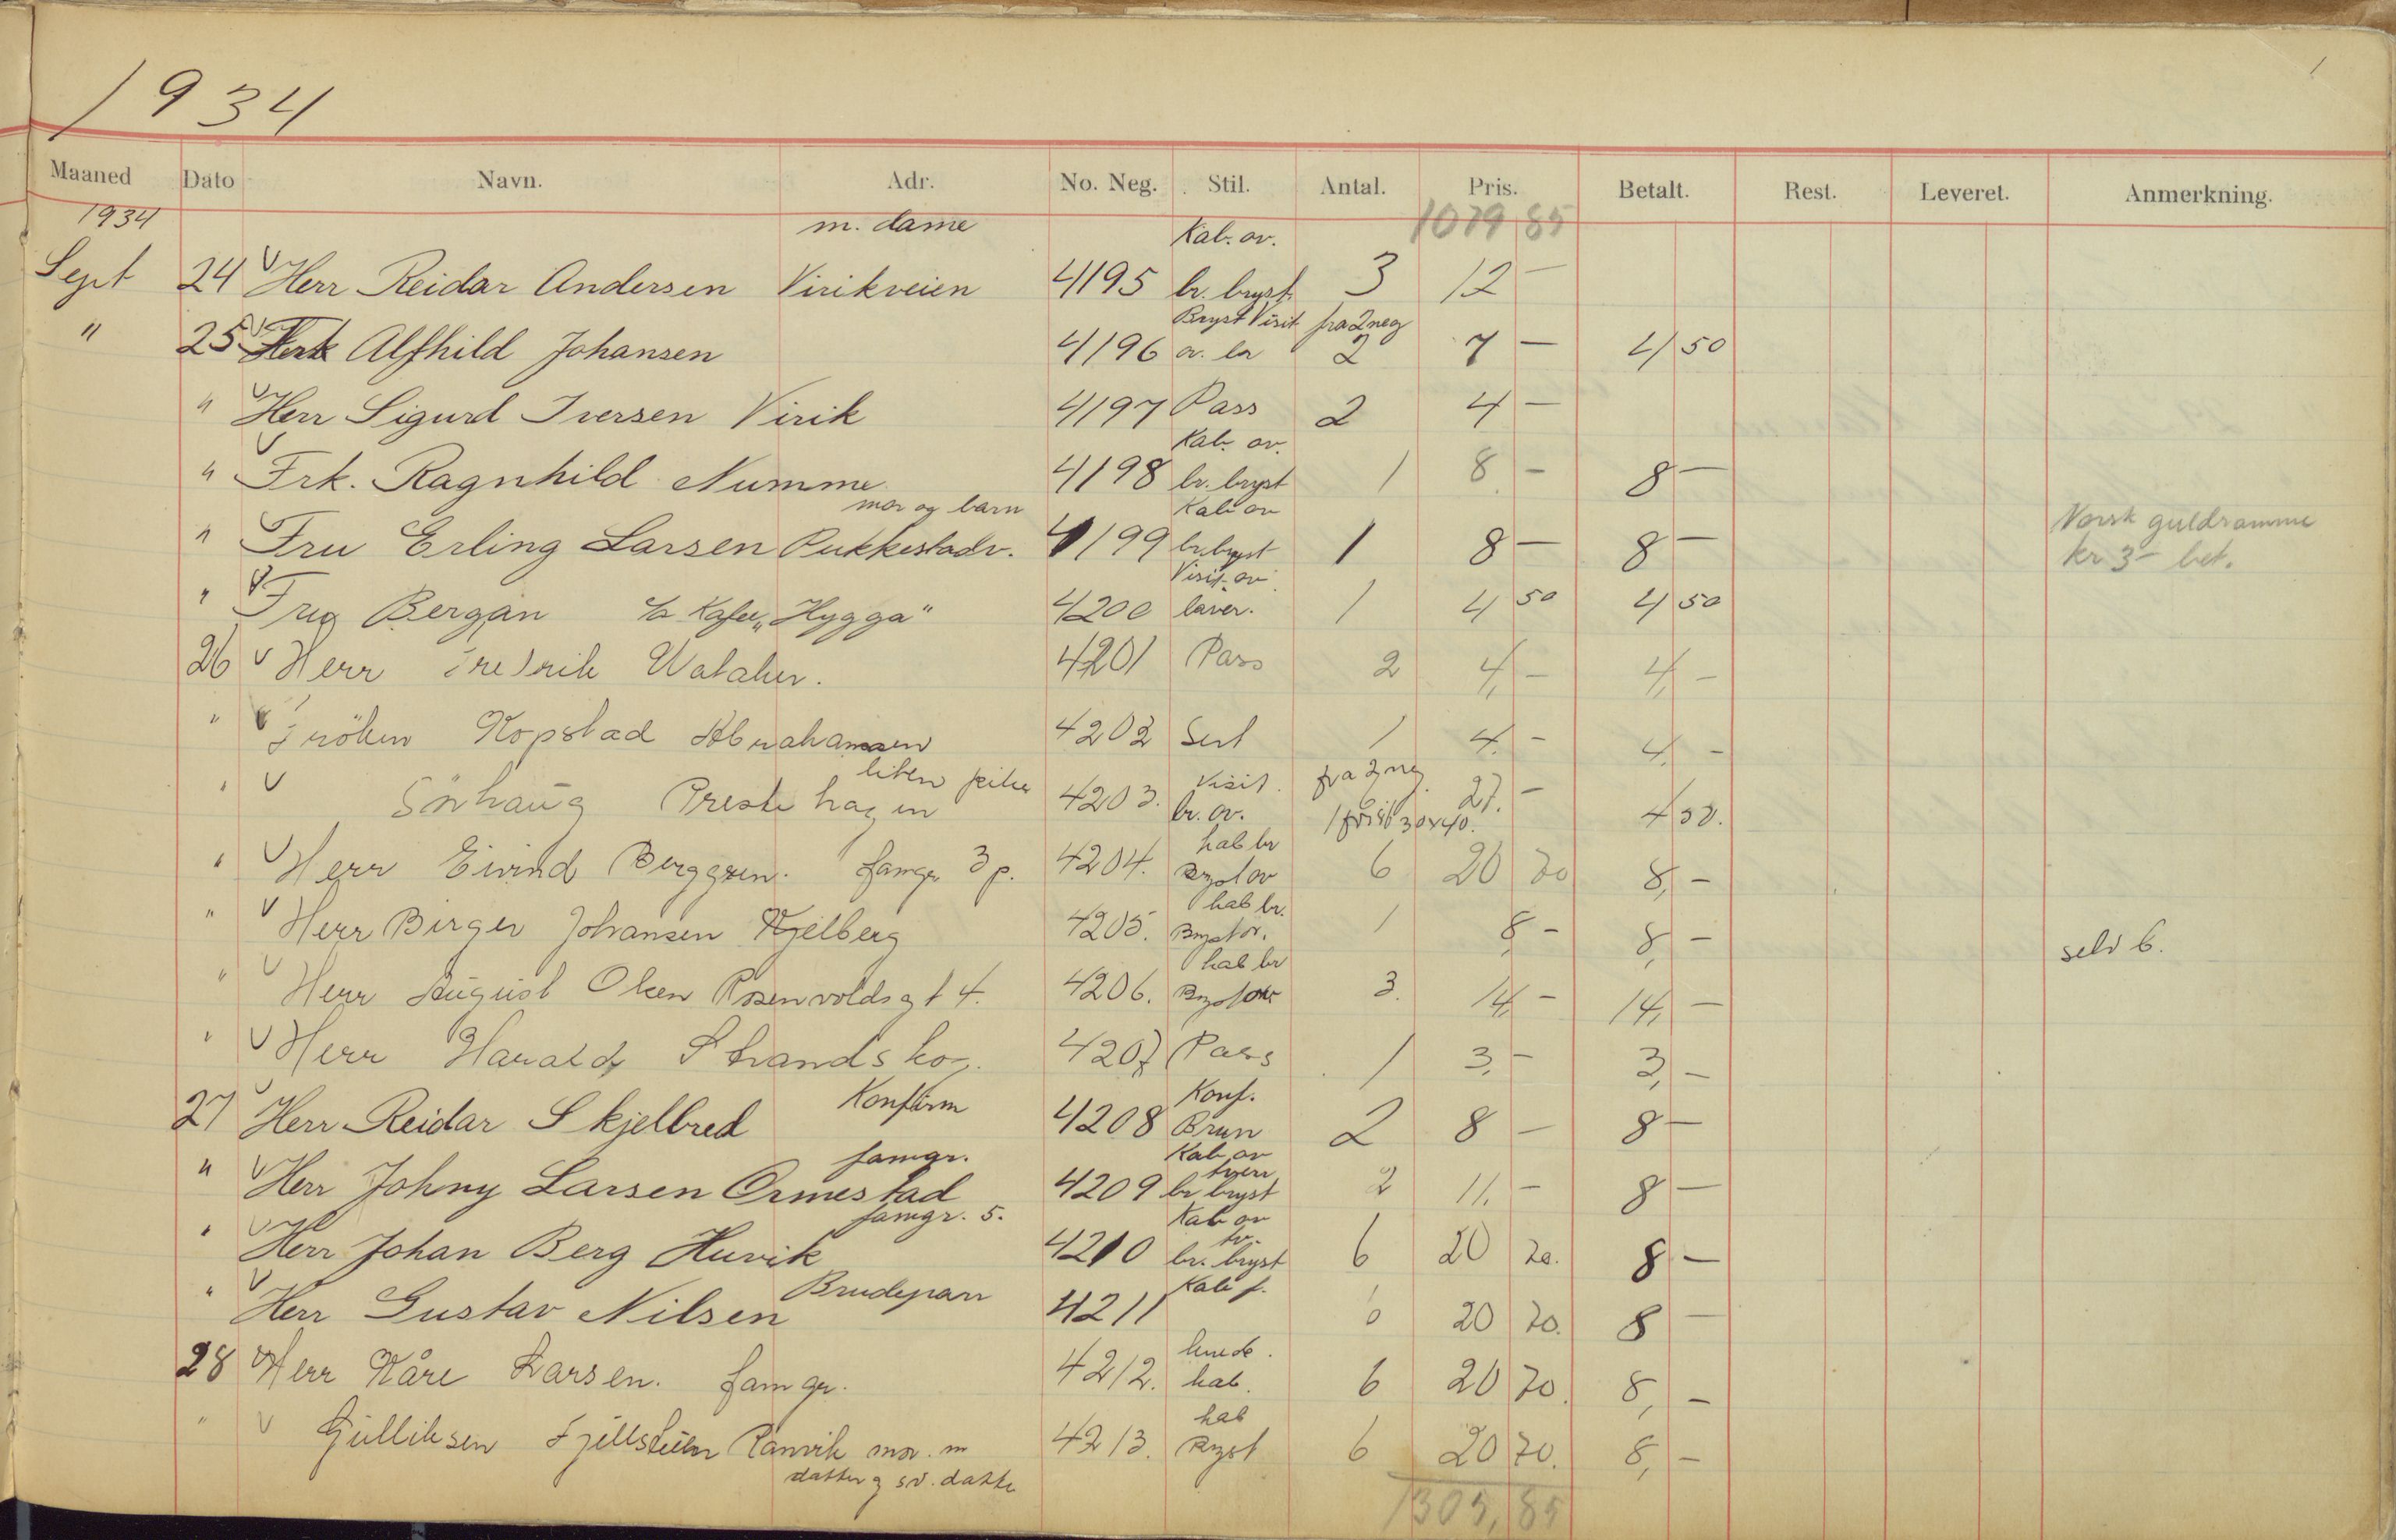 1934
1
Maaned Dato Navn. Adr. No. Neg. Stil. Antal. Pris. Betalt. Rest. Leveret. Anmerkning.
1934 m. dame Kab. ov. 1079 85
Sept 24 V Herr Reidar Andersen Virikveien 4195 br. bryst 3 12 —
Bryst Visit fra 2 neg
" 25 V Frk Alfhild Johansen 4196 ov. br 2 7 — 4 50
" V Herr Sigurd Iversen Virik 4197 Pass 2 4 —
Kab. ov.
" V Frk. Ragnhild Numme 4198 br. bryst 1 8 - 8 —
mor og barn Kab ov
" V Fru Erling Larsen Pukkestadv. 4199 br. bryst 1 8 — 8 — Norsk guldramme
kr 3- bet.
Visit. ov.
" V Bergan Kafee „Hygga" 4200 1 4 50 4 50
26 V Herr Fredrik Wataker. 4201 Pass 2 4,- 4,-
" V Fröken Kopstad Abrahamsen 4202 Sert 1 4. - 4. -
liten pike Visit. fra 2 neg.
" V Sörhaug Prestehagen 4203. br. ov. 1 30x40. 27. - 4 50.
kab br
" V Herr Eivind Berggren. famgr 3 p. 4204. Bryst ov 6 20 70 8,-
kab br.
" V Herr Birger Johansen Kjelberg 4205. Bryst ov. 1 8,- 8,- selv 6.
kab br
" V Herr August Olsen Rosenvoldsgt 4. 4206. Bryst ov 3. 14,- 14,-
" V Herr Harald Strandskog. 4207 Pass 1 3,- 3,-
Konfirm Konf.
27 V Herr Reidar Skjelbred 4208 Brun 2 8 — 8 —
famgr. Kab ov
tverr
" V Herr Johny Larsen Ormestad 4209 br bryst 2 11. - 8 —
famgr. 5. Kab ov
tv.
" V Herr Johan Berg Huvik 4210 br. bryst 6 20 70. 8 —
Brudepar Kab f.
" V Herr Gustav Nilsen 4211 6 20 70. 8 —
28 V Herr Kåre Larsen. famgr. 4212. kab. 6 20 70. 8,-
kab
" V Gulliksen Ranvik mor. m 4213. Bryst 6 20 70. 8,-
datter og sv. datte
1305,85